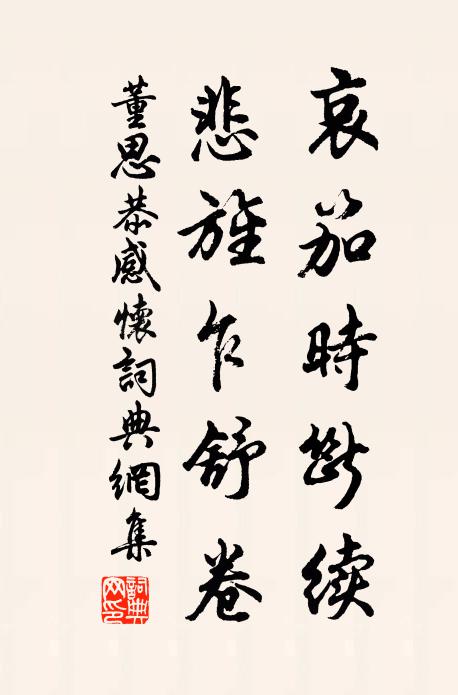 哀笳時斷續
悲旌乍舒卷
董思恭感懷詞典網集
詞典网印